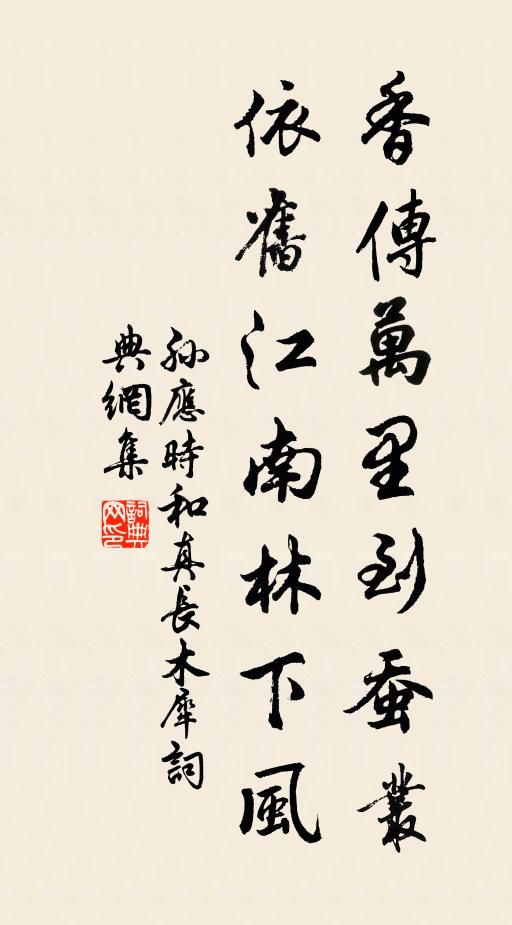 香傳萬里到蚕叢
依舊江南林下風
孙應時和真長木犀詞
典網集
詞典网印